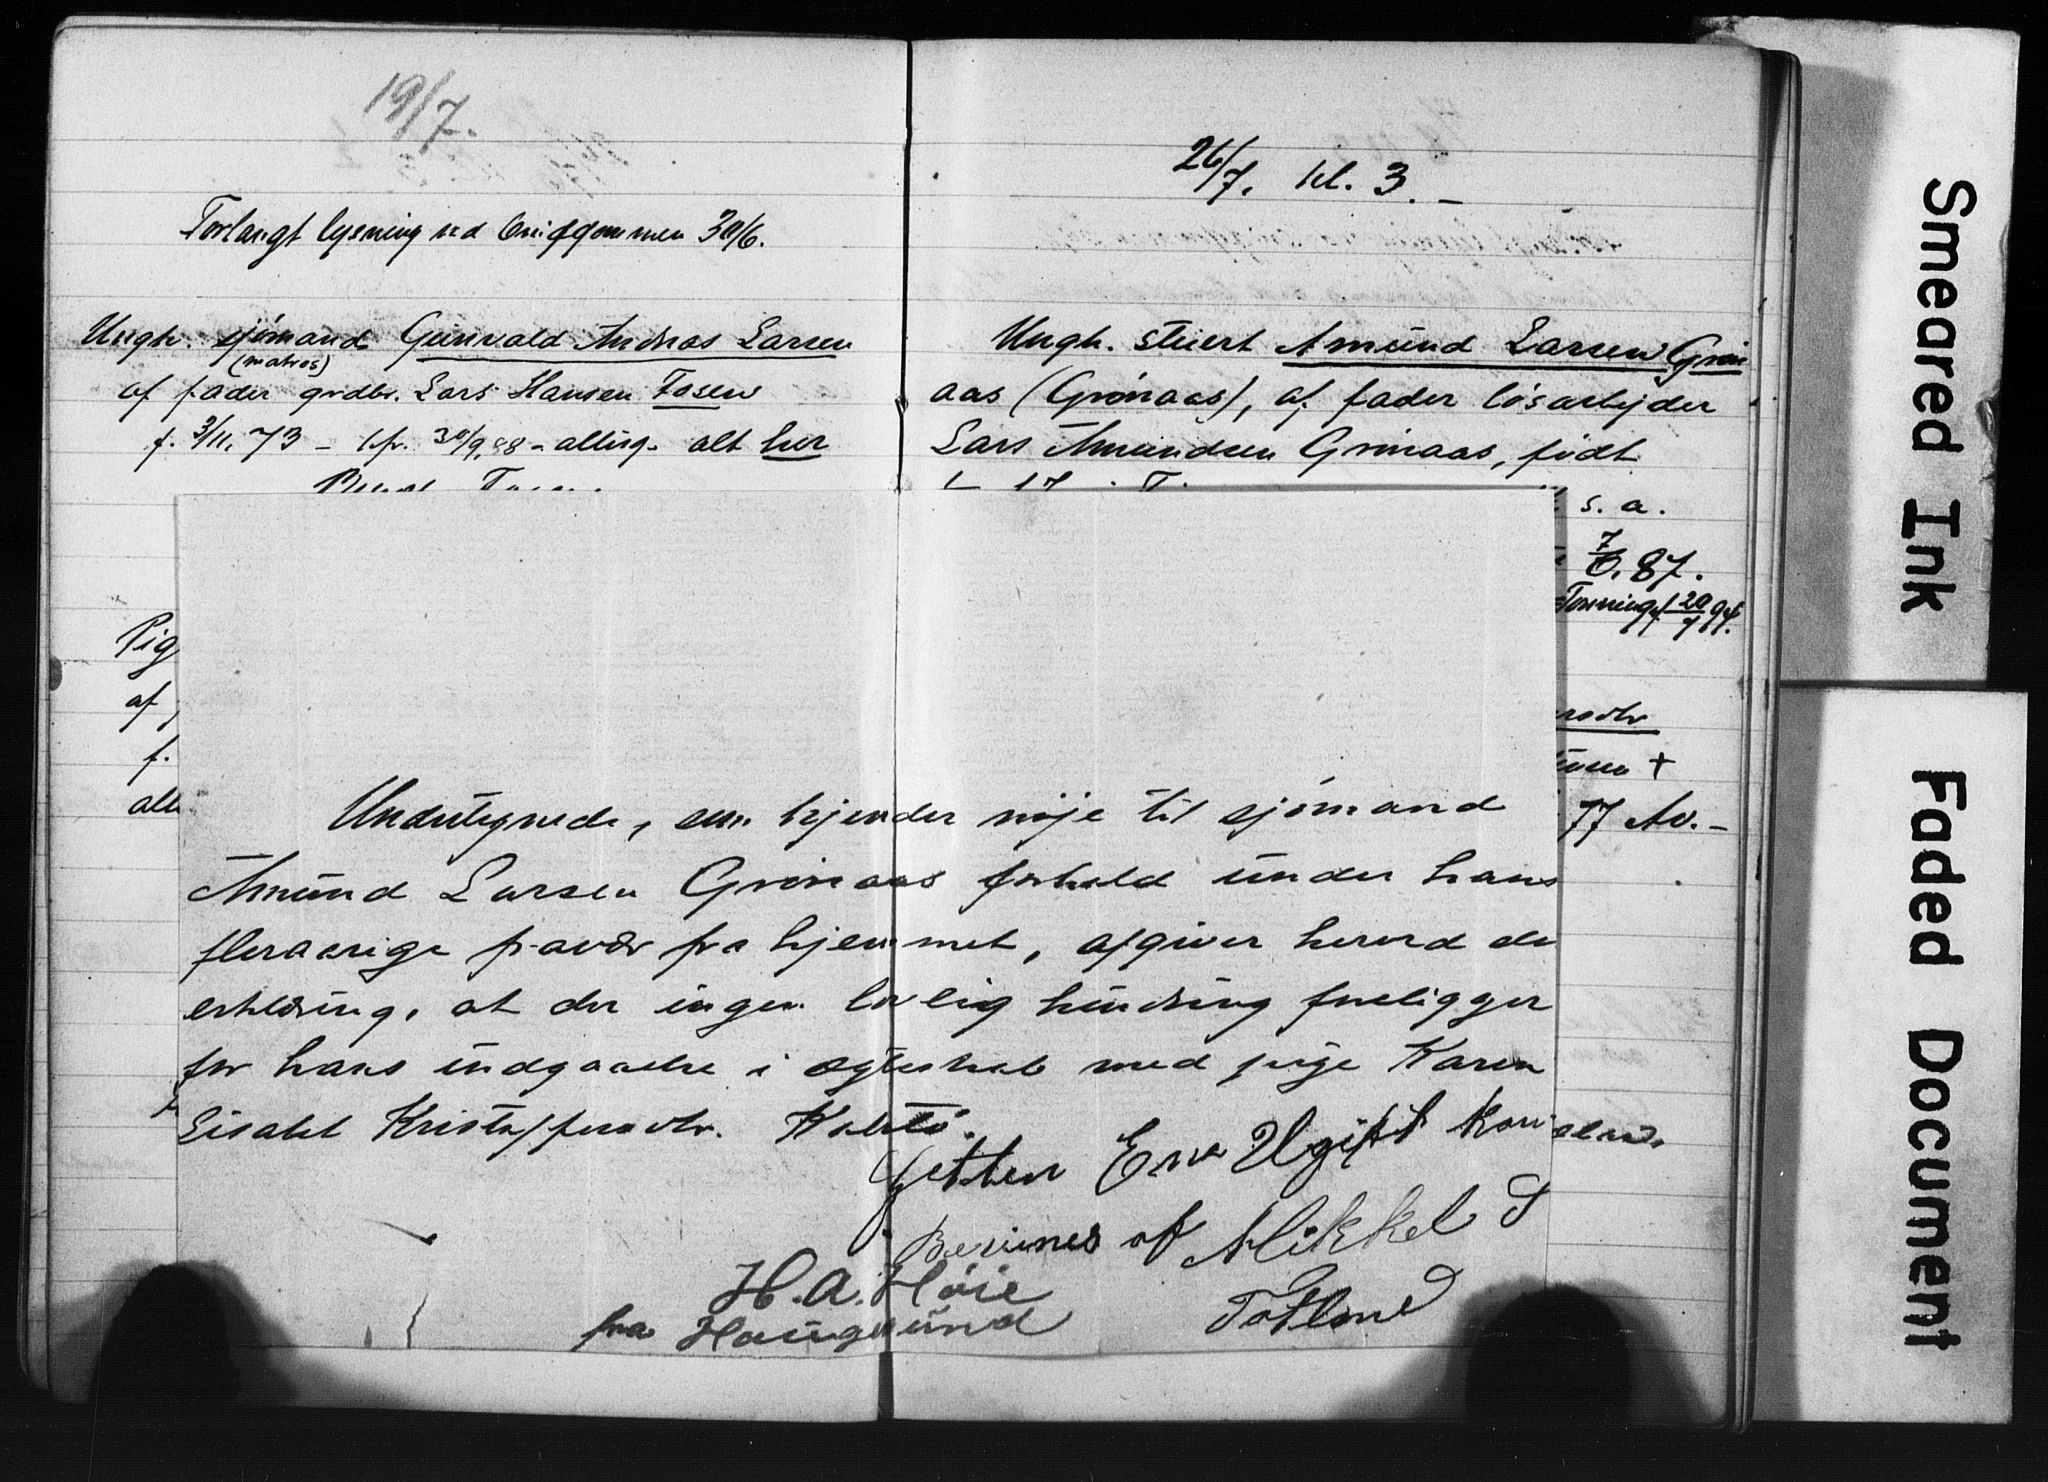 19/7.
Forlangt lysning ved brudgommen 30/6.
Ungk. sjömand Gunvald Andreas Larsen
(matros)
af fader grdbr. Lars Hansen Fosen
f. 3/11. 73 – kfr. 30/9, 88 – alt her
Pig
af
f.
26/7. kl. 3. –
Ungk. stuert Amund Larsen Grön
aas (Grönaas), af fader lösarbejder
Lars Amundsen Grönaas, födt
s. a.
7/6. 87.
77 Av. –
Undertegnede, som kjender nöje til sjömand
Amund Larsen Grönaas forhold under hans
fleraarige fravær fra hjemmet, afgiver herved den
erklæring, at der ingen lovlig hindring foreligger
for hans indgaaelse i ægteskab med pige Karen
Lisabet Kristoffersdtr. Kolstö.
Jetten Ene Ugift
Berimes af Mikkel S
H. A. Höie
fra Haugesund
Smeared Ink
Faded Document